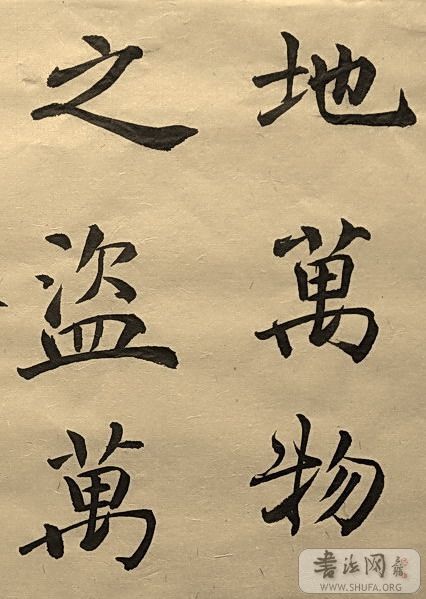 地萬物
之盜萬
書法网
WWW.SHUFA.ORG